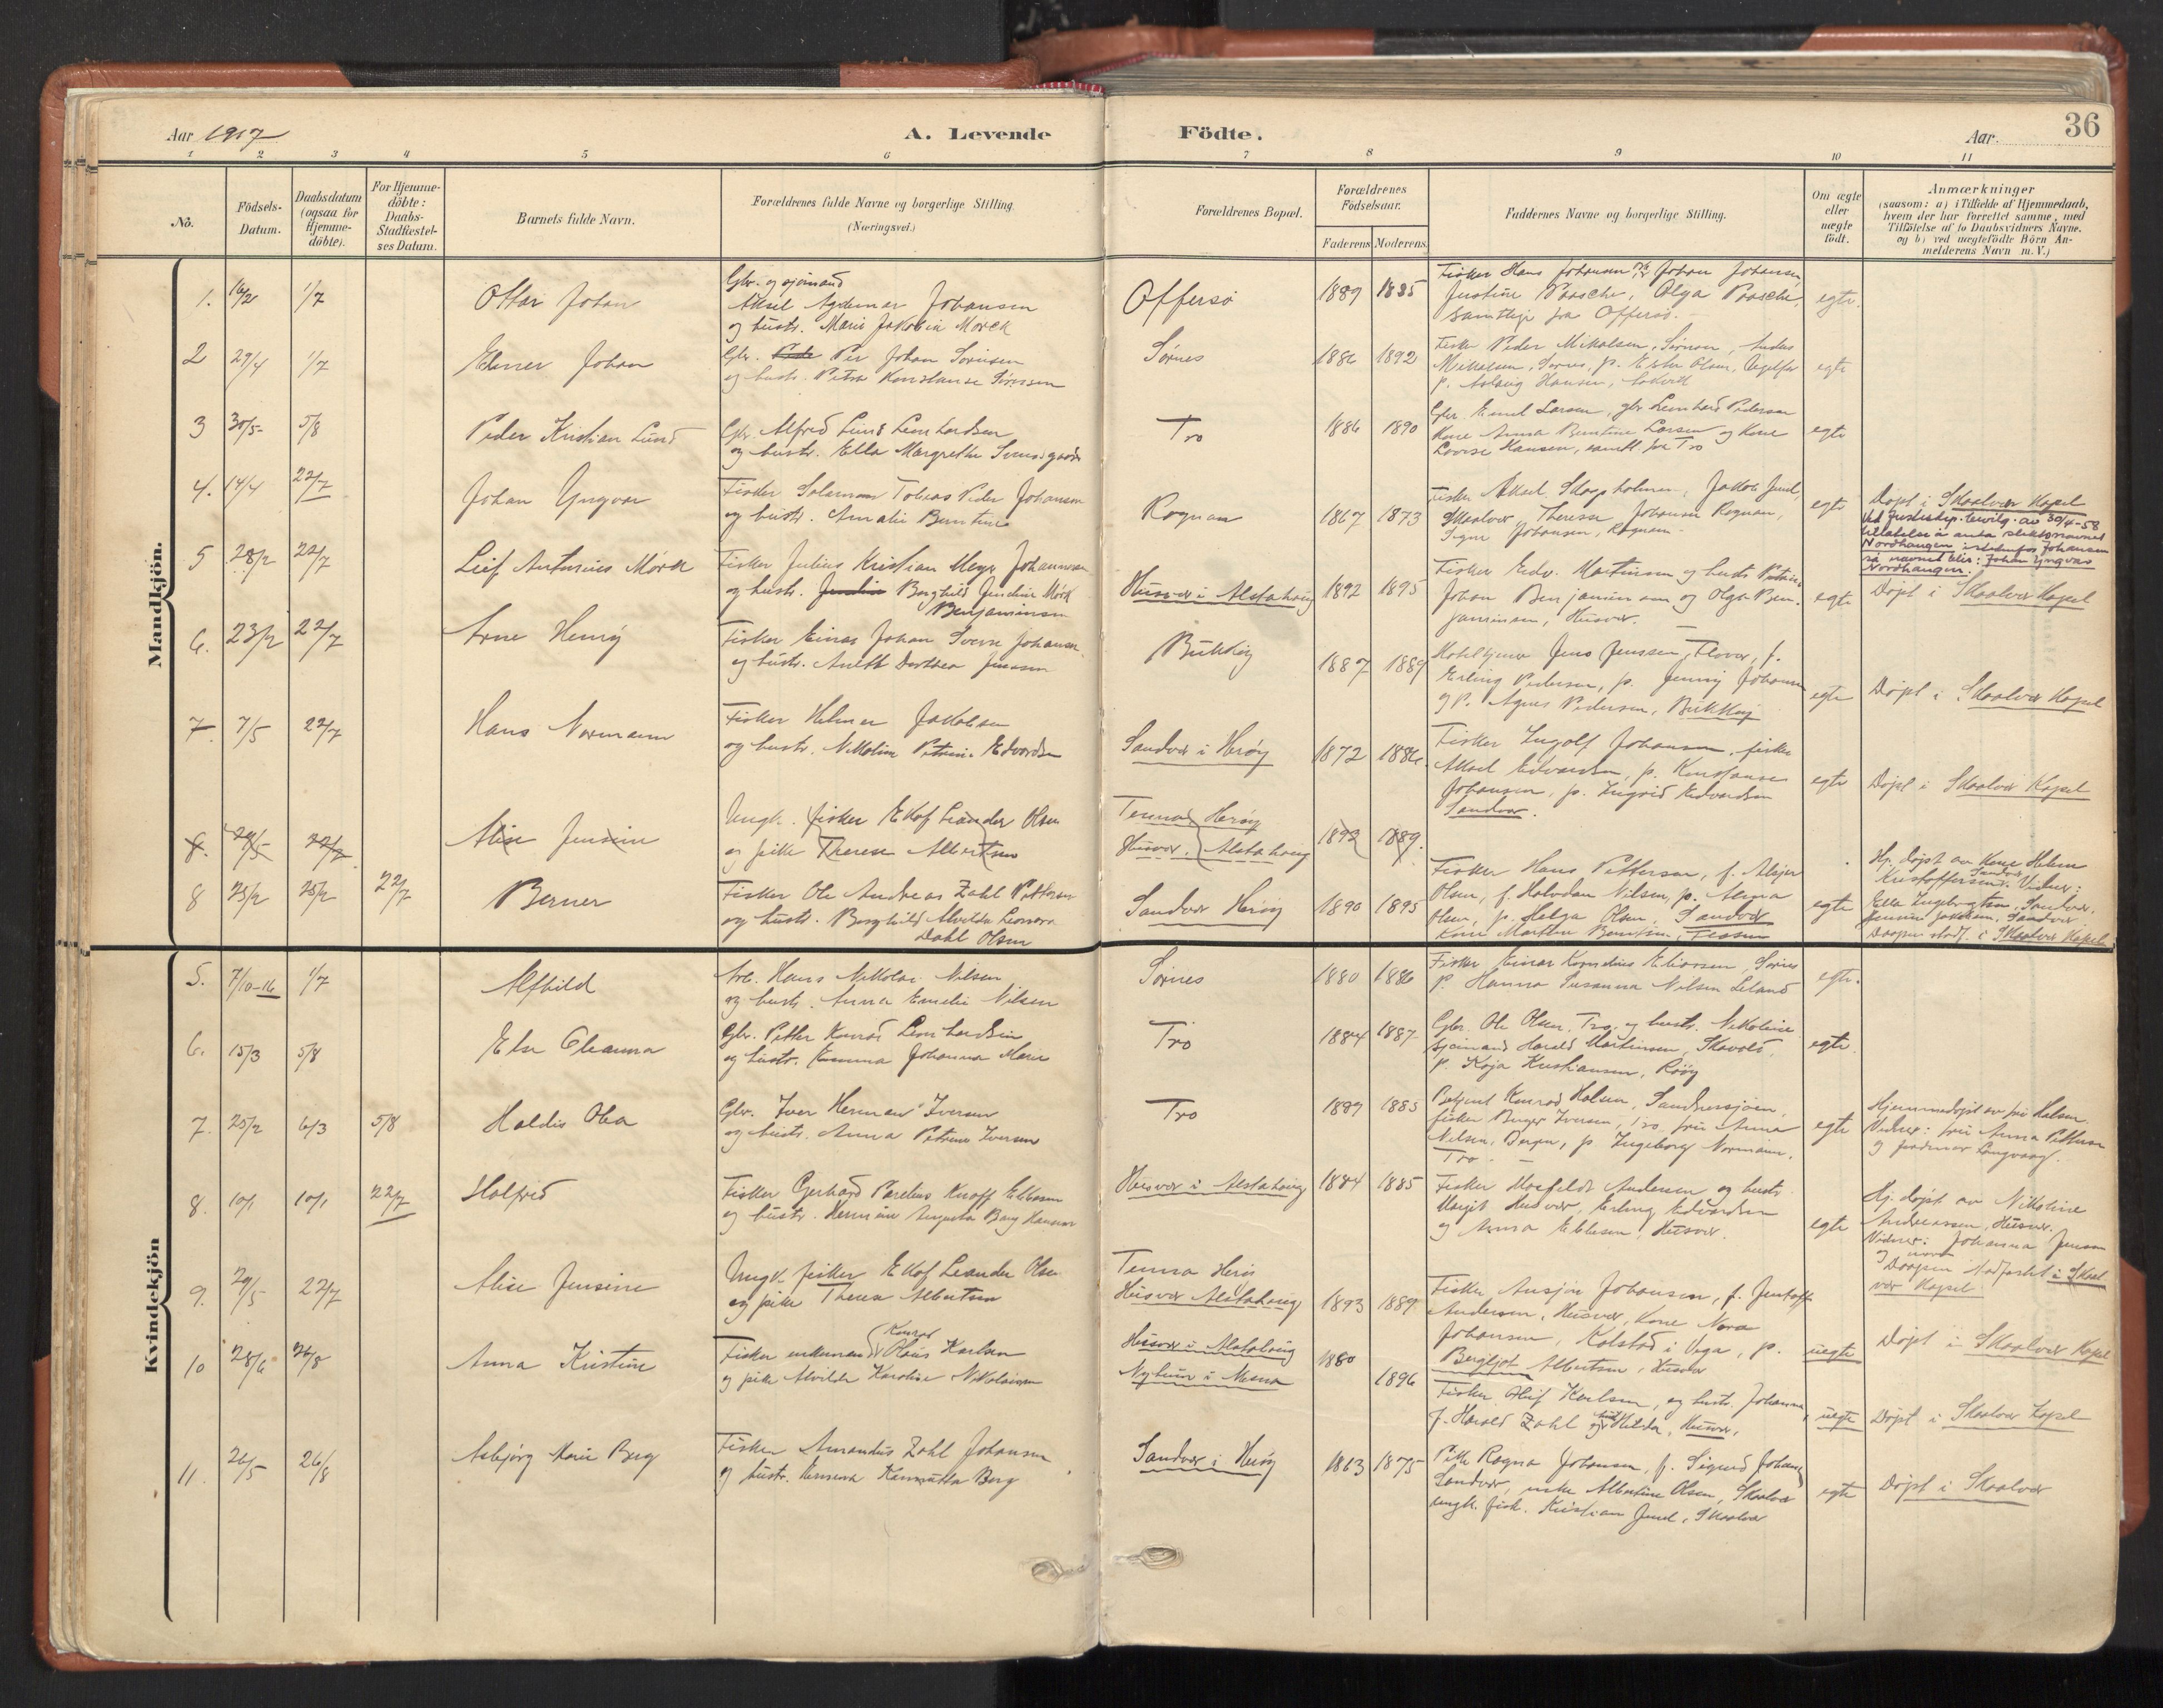 Aar 1917
A. Levende
Födte.
Aar.
36
1 2 3 4 5 6 7 8 9 10 11
No.
Födsels-
Datum.
Daabsdatum
(ogsaa for
Hjemme-
döbte).
For Hjemme-
döbte:
Daabs-
Stadfæstel-
ses Datum.
Barnets fulde Navn.
Forældrenes fulde Navne og borgerlige Stilling.
(Næringsvei.)
Forældrenes Bopæl.
Forældrenes
Födselsaar.
Faderens Moderens
Faddernes Navne og borgerlige Stilling.
Om ægte
eller
uægte
født.
Anmærkninger
(saasom: a) i Tilfælde af Hjemmedaab,
hvem der har forrettet samme, med
Tilföielse af to Daabsvidners Navne.
og b) ved uægtefödte Börn An-
melderens Navn m. V.)
Mandkjön.
1. 16/2 1/7
Ottar Johan
Gbr. og sjømand
Aksel Johansen
og hustr. Marie Jakobia Morck
Offersø
1889 1885
Fisker Hans Johansen, Johan Johansen,
Justine Paasche, Olga Paasche,
samtlige fra Offersø.
egte.
2 29/4 1/7
Elmer Johan
Gbr. Per Johan Sørensen
og hustr. Petra Konstanse Sørensen
Sørnes
1886 1892
Fisker Peder Mikalsen, Sørnes,
Mikalsen, Sørnes, p. Ester Olsen,
p. Aslaug Hansen,
egte
3 30/5 5/8
Peder Kristian Lund
Gbr. Alfred Lund Leonhardsen
og hustr. Ella Margrethe
Tro
1886 1890
Gbr. Emil Larsen, gbr Leonhard Pedersen
Kone Anna Berntine Larsen og Kone
Lovise Hansen, samtl. fra Tro
egte
4. 14/4 22/7
Johan Yngvar
Fisker Salamon Tobias Peder Johansen
og hustr. Amalie Berntine
Rognan
1867 1873
Fisker Aksel Skogsholmen, Jakob Juul,
Skaalvær, Therese Johansen Rognan,
Signe Johansen, Rognan
egte
Døpt i Skaalvær Kapel
Ved Justisdep. bevilg. av 30/4-58
tillatelse å anta slektsnavnet
Nordhaugen istedenfor Johansen
så navnet blir: Johan Yngvar
Nordhaugen.
5 28/2 22/7
Leif Antonius Mörk
Fisker Julius Kristian Meyer Johannesen
og hustr. Borghild Jensine Mörk
Benjaminsen
Husvær i Alstahaug
1892 1895
Fisker Edv. Martinsen og hustr Petrine
Johan Benjaminsen og Olga Ben-
jaminsen, Husvær.
egte
Døpt i Skaalvær Kapel
6. 23/2 22/7
Arne Henry
Fisker Einar Johan Sverre Johansen
og hustr. Anette Dorthea Jensen
Bukkøy
1887 1889
Jens Jenssen, Flovær, f.
Erling Pedersen, p. Jenny Johansen
og p. Agnes Pedersen, Bukkøy
egte
Døpt i Skaalvær Kapel
7. 7/5 22/7
Hans Normann
Fisker Helmer Jakobsen
og hustr. Nikoline Petrine Edvardsen
Sandvær i Herøy
1872 1886.
Fisker Ingolf Johansen, fisker
Aksel Edvardsen, p. Konstanse
Johansen, p. Ingrid Edvardsen
Sandvær.
egte
Døpt i Skaalvær Kapel
8. 29/5 22/7
Alise Jensine
Ungk. fisker Ekof Leander Olsen
og pike Therese Albertsen
Tenna Herøy
Husvær. Alstahaug
1893 1889.
8 25/2 25/2 22/7
Berner
Fisker Ole Andreas Zahl Pettersen
og hustr. Borghild Alvilda Leonora
Dahl Olsen
Sandvær Herøy
1890 1895
Fisker Hans Pettersen, f.
Olsen, f. Halvdan Nilsen, p. Anna
Olsen, p. Helga Olsen, Sandvær
Kone Marthea Berntsen,
egte
Hj. døpt av Kone Helene
Kristoffersen Sandvær. Vidner:
Ella Ingebrigtsen, Sandvær,
Jensine Jakobsen, Sandvær.
Daapen stadf. i Skaalvær Kapel
Kvindekjön
5. 7/10-16 1/7
Alfhild
Arb. Hans Nikolai Nilsen
og hustr. Anna Emelie Nilsen
Sørnes
1880 1886
Fisker Einar Kornelius Eliassen, Sørnes
p. Hanna Susanna Nilsen Leland
egte.
6. 15/3 5/8
Else Oleanna
Gbr. Petter Konrad Leonhardsen
og hustr. Emma Johanna Marie
Tro
1884 1887
Gbr. Ole Olsen, Tro, og hustr. Nikoline
Sjømand Harald Martinsen, Skavold,
p. Kaja Kristiansen, Røøy
egte.
7. 25/2 6/3 5/8
Haldis Olea
Gbr. Iver Herman Iversen
og hustr. Anna Petrine Iversen
Tro
1889 1885
Betjent Konrad Halsen, Sandnessjøen,
fisker Berger Iversen, Tro, frue Anna
Nilsen, Bergen, p Ingeborg Normann,
Tro.
egte
Hjemmedøpt av fru Halsen.
Vidner: fru Anna Pettersen
og jordmor Langvaag.
8. 10/1 10/1 22/7
Halfrid
Fisker Gerhard Parelius Knoff Ebbesen
og hustr. Hermine Augusta Berg Hansen
Husvær i Alstahaug
1884 1885
Fisker Hosfeldt Andersen og hustr.
Margit Husvær, Erling Edvardsen
og Anna Ebbesen, Husvær.
egte
Hj. døpt av Nikoline
Andreassen, Husvær.
Vidner: Johanna Jensen
og mor
Daapen stadfestet i Skaal-
vær Kapel
9. 29/5 22/7
Alise Jensine
Ungk. fisker Ekof Leander Olsen
og pike Therese Albertsen
Tenna Herøy
Husvær Alstahaug
1893 1889
Fisker Ansjøn Johansen, f. Jentoft
Andersen, Husvær, Kone Nora
Johansen, Kolstad i Vega, p.
Bergljot Albertsen, Husvær
uegte
Døpt i Skaalvær Kapel
10 28/6 26/8
Anna Kristine
Konrad
Fisker enkemand Olaus Karlsen
og pike Alvilde Karoline Nikolaisen
Husvær i Alstahaug
1880
1896
Fisker Olaf Karlsen, og hustr. Johanna,
f. Harald Zahl og hust Hilda, Husvær,
uegte
Døpt i Skaalvær Kapel
11. 26/5 26/8
Asbjørg Marie Berg
Fisker Amandus Zahl Johansen
og hustr. Berg
Sandvær i Herøy
1863 1875
Pike Ragna Johansen, f. Sigurd Johansen
Sandvær, enke Albertine Olsen, Skaalvær
ungk. fisk. Kristian Juul, Skaalvær
egte
Døpt i Skaalvær